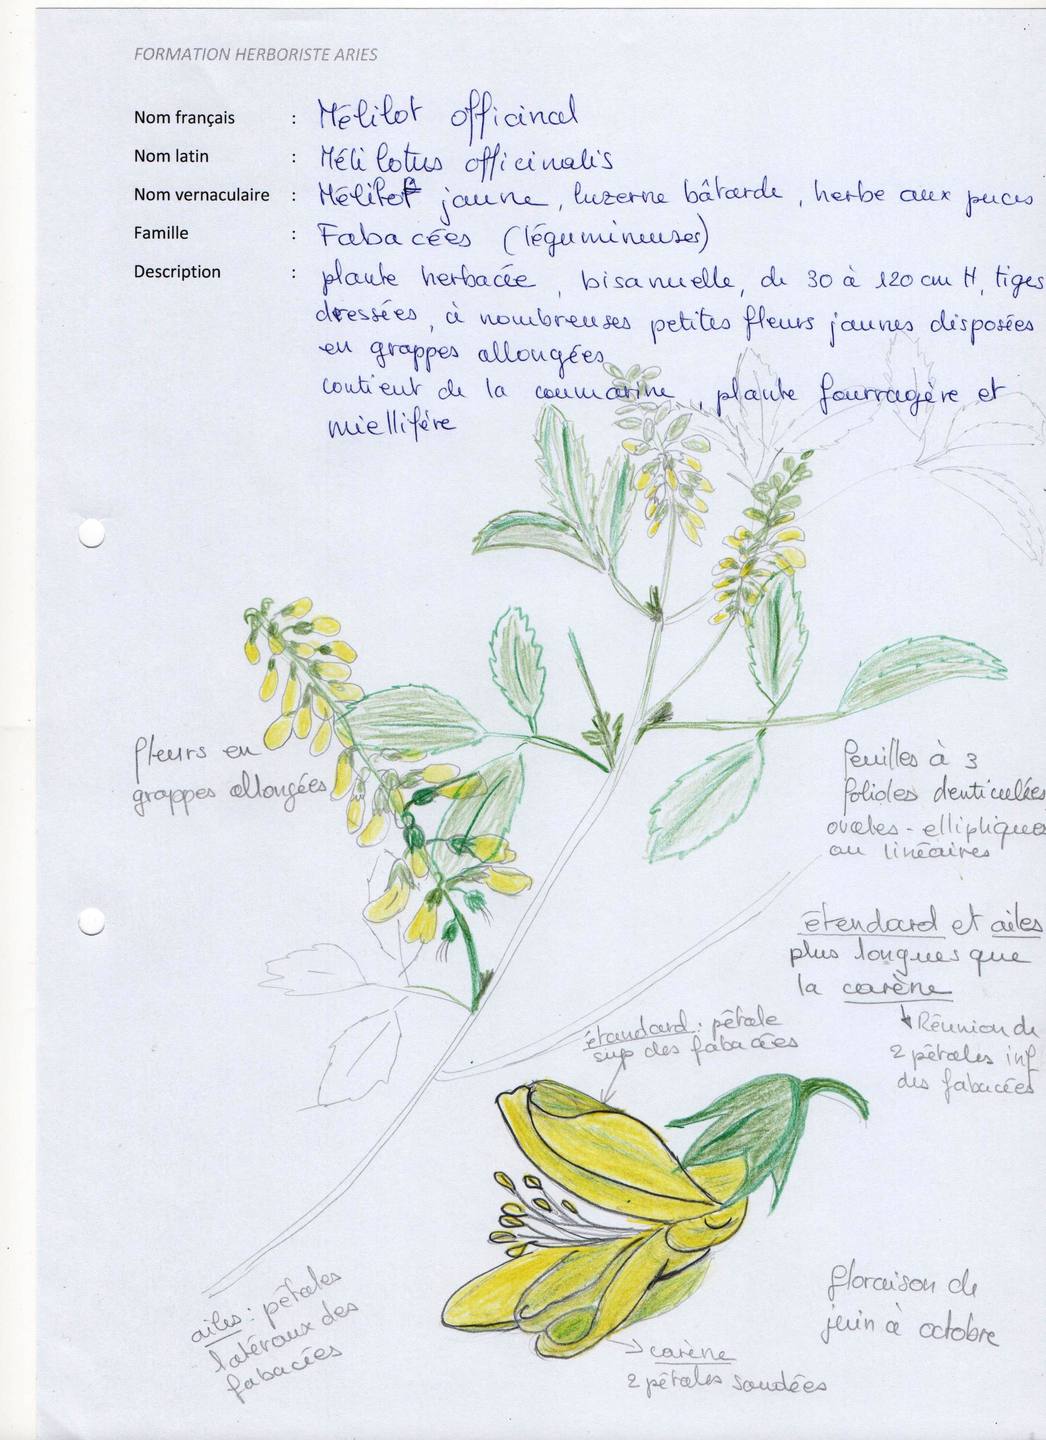 FORMATION HERBORISTE ARIES
Nom français : Mélilot officinal
Nom latin : Mélilotus officinalis
Nom vernaculaire : Mélilot jaune, luzerne bâtarde, herbe aux puces
Famille : Fabacées (légumineuses)
Description : plante herbacée, bisanuelle, de 30 à 120 cm H, tiges
dressées, à nombreuses petites fleurs jaunes disposées
en grappes allongées
contient de la coumarine, plante fourragère et
miellifère
fleurs en
grappes allongées
feuilles à 3
folioles denticulées
ovales - elliptiques
ou linéaires
étendard et ailes
plus longues que
la carène
Réunion de
2 pétales inf
des fabacées
étandard : pétale
sup des fabacées
ailes : pétales
latéraux des
fabacées
carène
2 pétales soudées
floraison de
juin à octobre